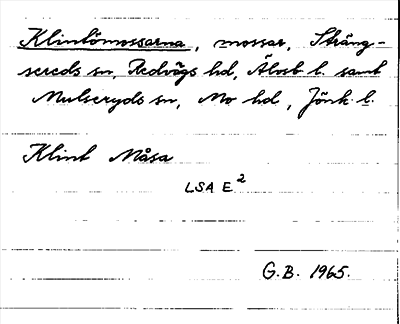 Klintömossarna, mossar, Sträng-
sereds sn, Redvägs hd, Älvsb l. samt
Mulseryds sn, Mo hd, Jönk l.
Klint Måsa
LSA E²
G.B. 1965.